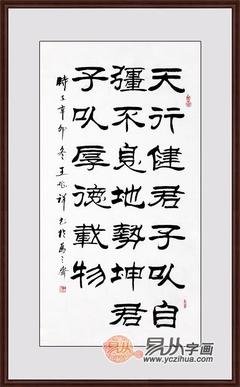 天行健君子以自
彊不息地勢坤君
子以厚德載物
時在辛卯冬王兆祥書於萬之齋
易从字画
www.yczihua.com